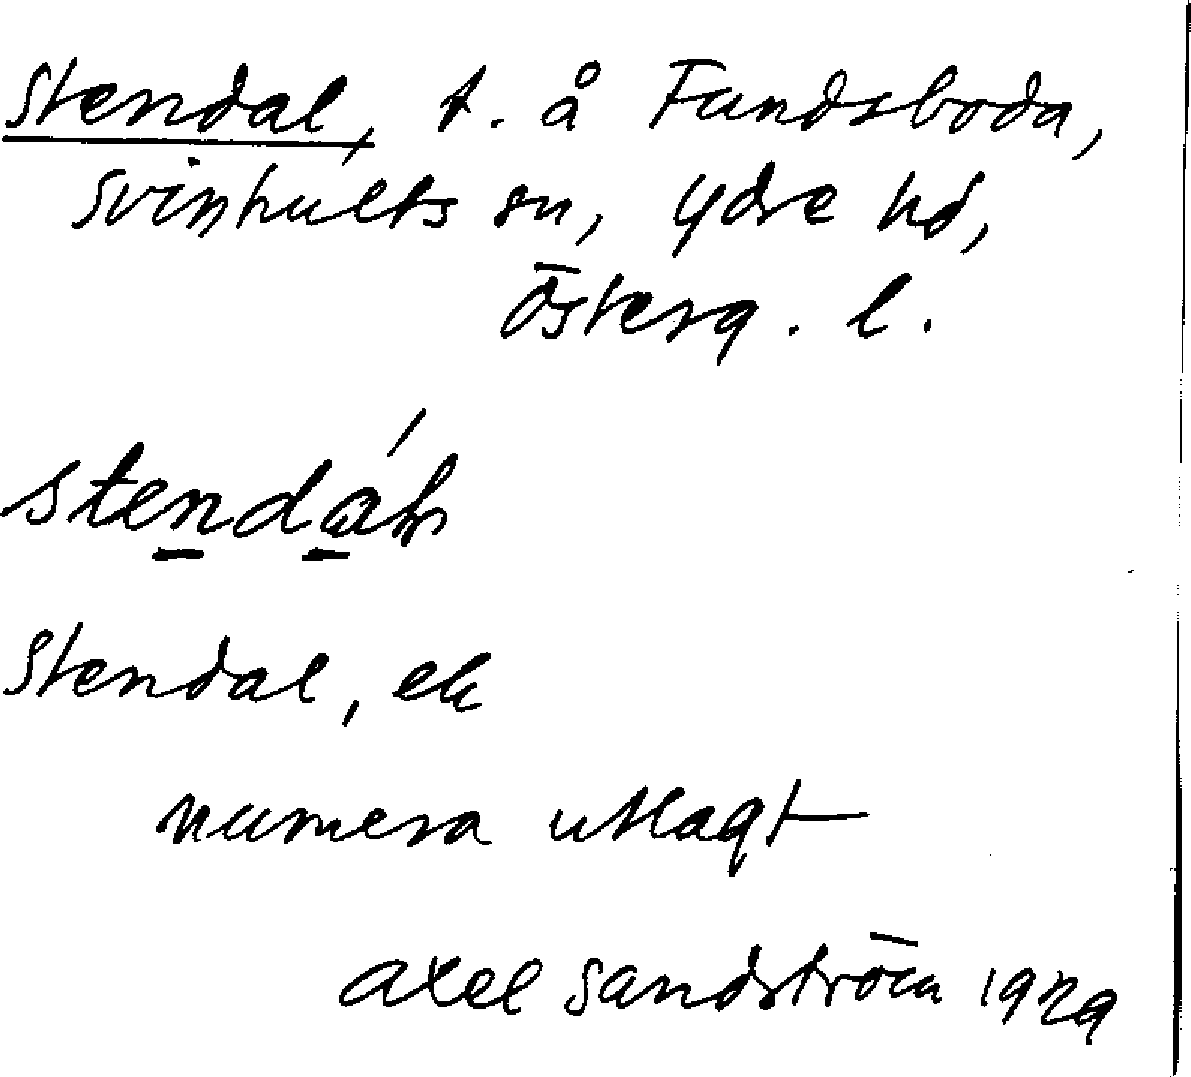 Stendal, t. å Fundsboda,
Svinhults sn, Ydre hd,
Österg. l.
Stendal, ek
numera utlagt
Axel Sandström 1929